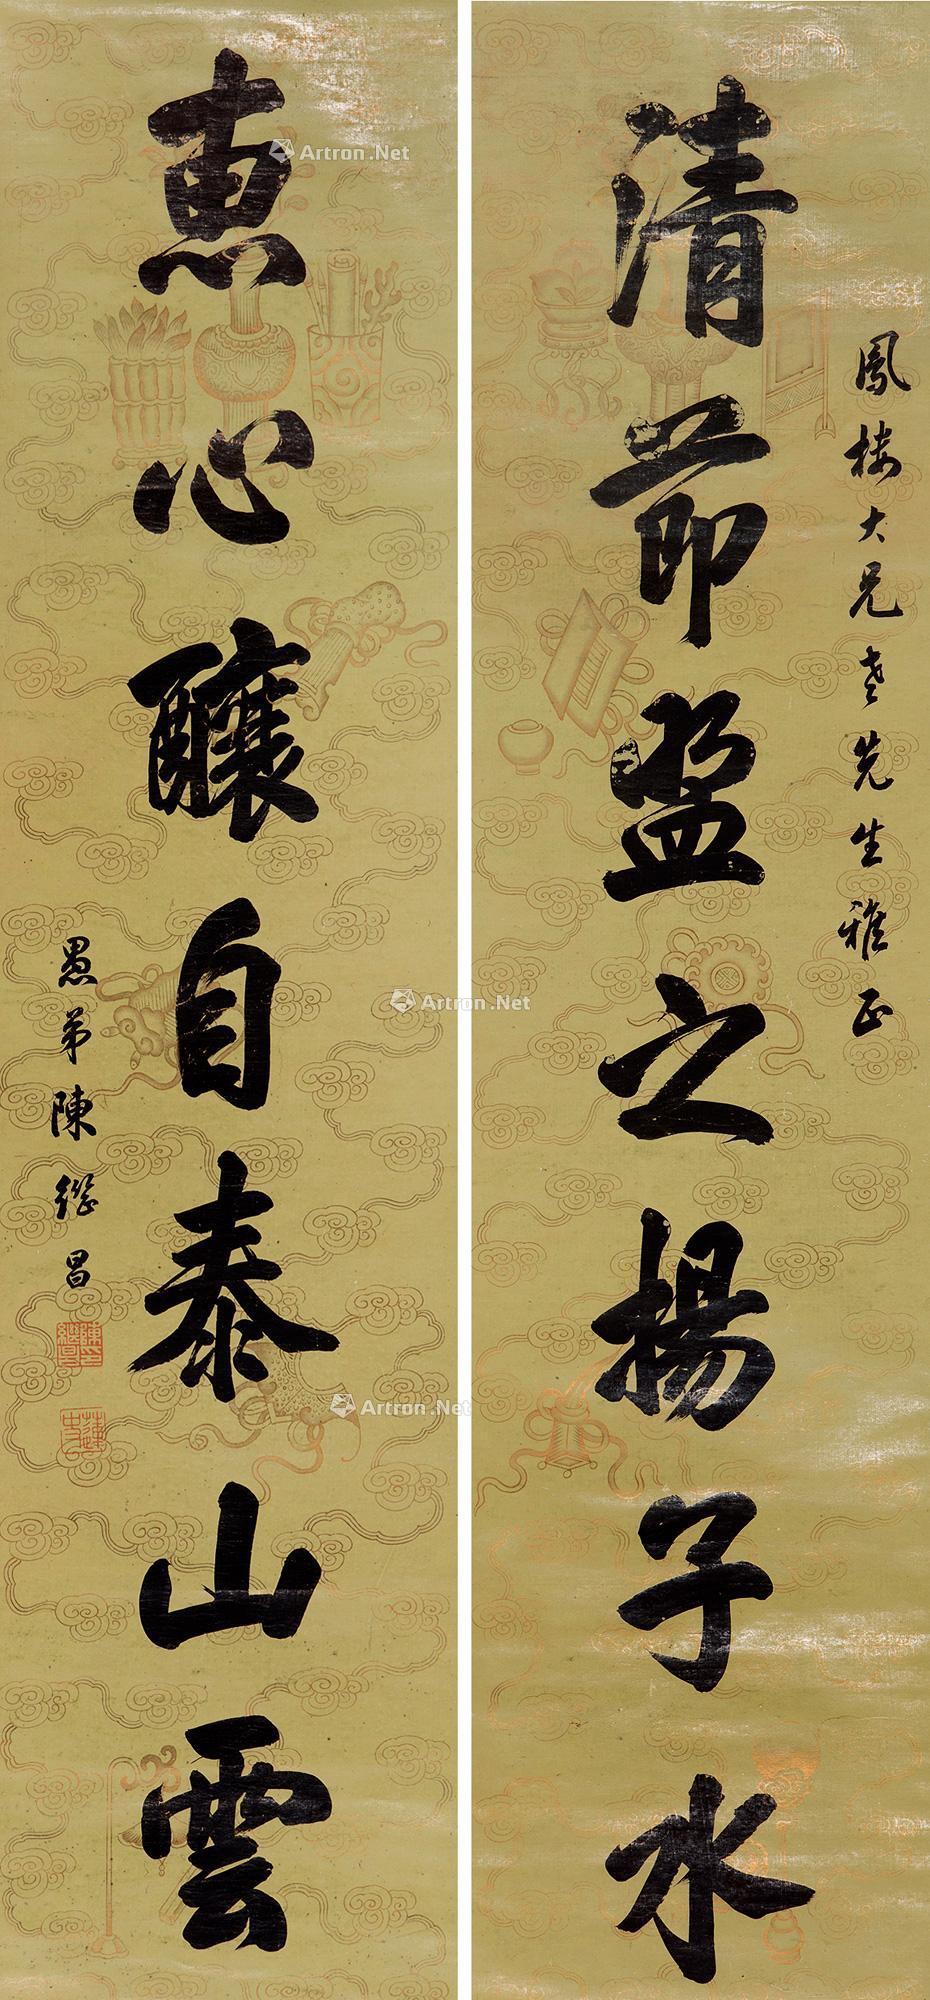 鳳樓大兄老先生雅正
清節盟之揚子水
惠心釀自泰山雲
愚弟陳繼昌
陳印繼昌
蓮史
Artron.Net
Artron.Net
Artron.Net